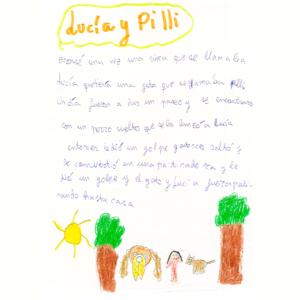 Lucía y Pilli
Erase una vez una niña que se llamaba
Lucía que tenía una gata que se llamaba Pilli
Un día fueron a dar un paseo y se encontraron
con un perro suelto que se la lanzó a Lucía
entonces le dió un golpe y saltó y
se convirtió en una patinadora y le
dió un golpe y el gato y Lucía fueron pati-
nando hasta casa